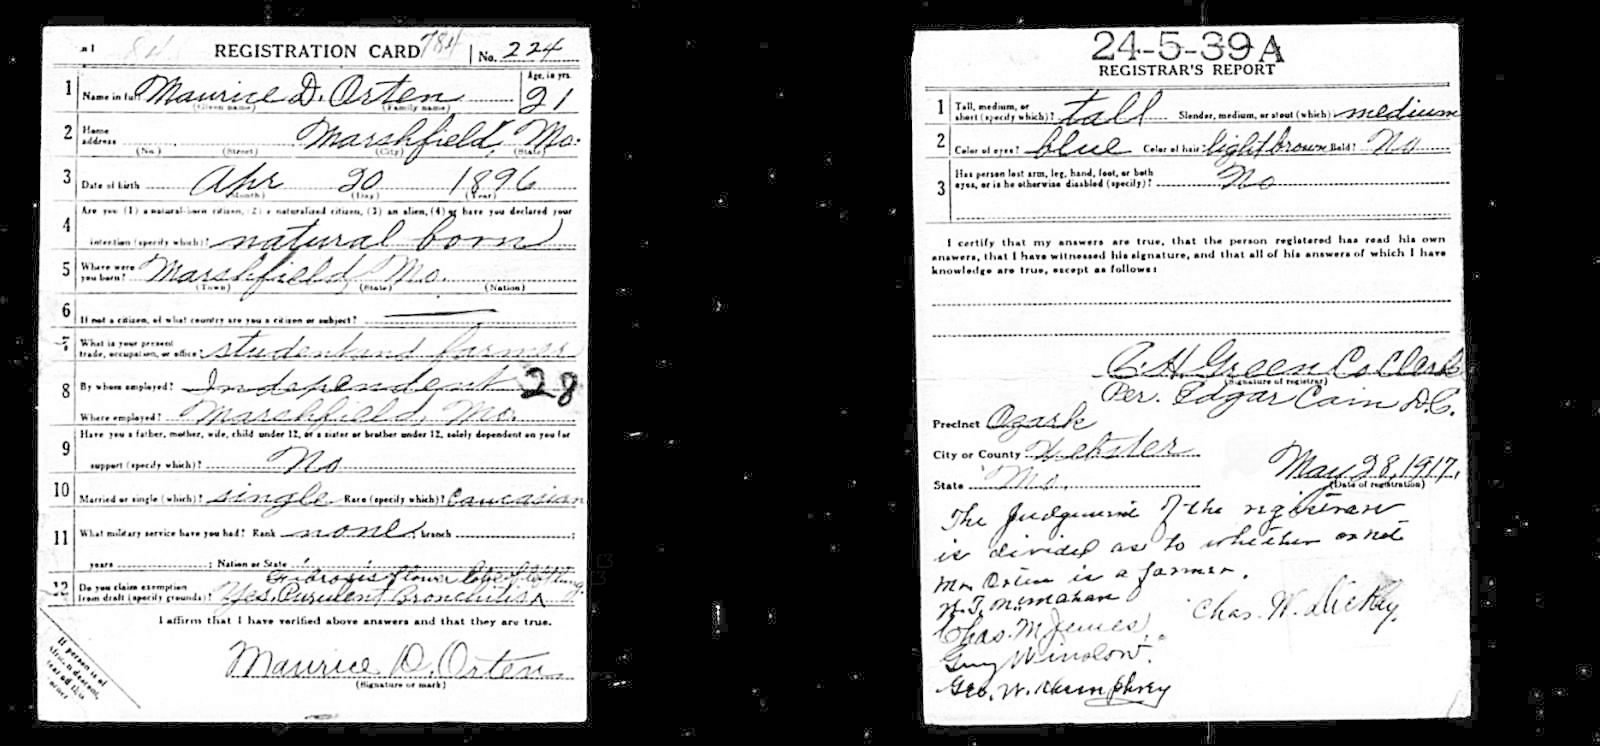 84 REGISTRATION CARD 784 No. 224
1 Name in full Maurice D. Orten Age, in yrs. 21
(Given name) (Family name)
2 Home address Marshfield, Mo.
(No.) (Street) (City) (State)
3 Date of birth Apr 20 1896
(Month) (Day) (Year)
4 Are you (1) a natural-born citizen, (2) a naturalized citizen, (3) an alien, (4) or have you declared your
intention (specify which)? natural born
5 Where were you born? Marshfield Mo.
(Town) (State) (Nation)
6 If not a citizen, of what country are you a citizen or subject?
7 What is your present trade, occupation, or office? student and farmer
8 By whom employed? Independent 28
Where employed? Marshfield, Mo.
9 Have you a father, mother, wife, child under 12, or a sister or brother under 12, solely dependent on you for
support (specify which)? No
10 Married or single (which)? single Race (specify which)? Caucasian
11 What military service have you had? Rank none; branch ;
years ; Nation or State
Fibrosis lower lobe left lung
12 Do you claim exemption from draft (specify grounds)? Yes, Purulent Bronchitis
I affirm that I have verified above answers and that they are true.
Maurice D. Orten
(Signature or mark)
If person is of
African descent,
tear off this
corner
24-5-39 A
REGISTRAR'S REPORT
1 Tall, medium, or short (specify which)? tall Slender, medium, or stout (which)? medium
2 Color of eyes? blue Color of hair? light brown Bald? No
3 Has person lost arm, leg, hand, foot, or both eyes, or is he otherwise disabled (specify)? No
I certify that my answers are true, that the person registered has read his own
answers, that I have witnessed his signature, and that all of his answers of which I have
knowledge are true, except as follows:
C. H. Green Co Clerk
(Signature of registrar)
Per. Edgar Cain D.C.
Precinct Ozark
City or County Webster
State Mo.
May 28, 1917.
(Date of registration)
The Judgement of the registrars
is divided as to whether or not
Mr. Orten is a farmer.
Chas. W. Dickey.
Chas. M. James
Guy Winslow.
Geo. W. Humphrey